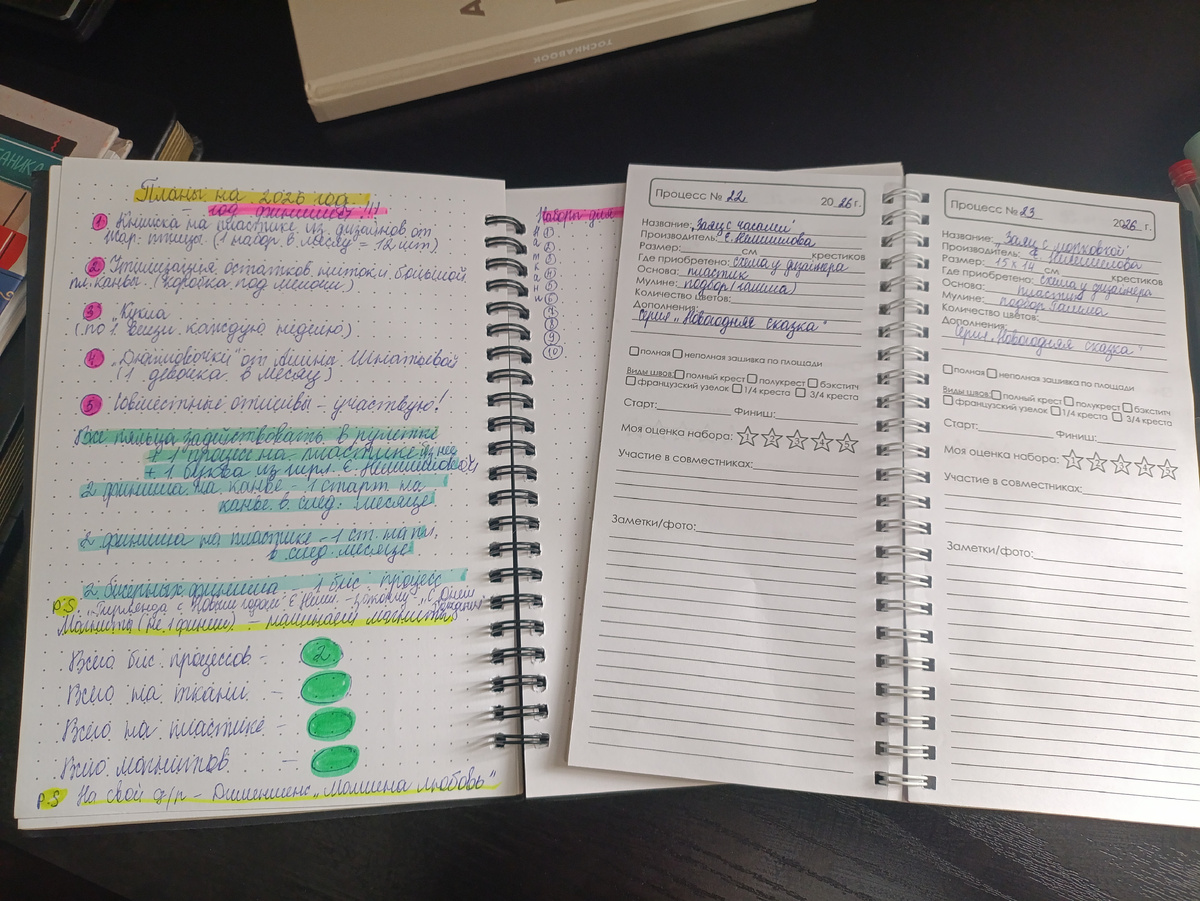 TOCHKABOOK
Планы на 2026 год
год финишей!!!
1 Книжка на пластике из дизайнов от
Жар-птицы. (1 набор в месяц = 12 шт)
2 Утилизация остатков ниток и большой
пл. канвы. (коробка под мелочи)
3 Кукла
(по 1 вещи каждую неделю)
4 Дюймовочки от Инны Игнатьевой
(1 девочка в месяц)
5 Совместные отшивы - участвую!
Все пяльца задействовать в рулетке
1 процесс на пластике из нее
+ 1 буква из гирл. Е. Немшиловой
2 финиша на канве - 1 старт на
канве в след. месяце
2 финиша на пластике - 1 ст. на пл.
в след. месяце
2 бисерных финиша 1 бис. процесс
P.S "Гирлянда с Новым годом" Е Немш. "С Днем Рождения"
Магниты (не 1 финиш) - начинаем магниты
Всего бис. процессов - 2
Всего на ткани. -
Всего на пластике -
Всего магнитов -
P.S На свой д/р - Дименшенс "Мамина любовь"
Наборы
1
2
3
4
5
6
7
8
9
10
Процесс № 22 2026 г.
Название: "Заяц с часами"
Производитель: Е. Немшилова
Размер: см крестиков
Где приобретено: схема у дизайнера
Основа: пластик
Мулине: подбор (гамма)
Количество цветов:
Дополнения:
серия "Новогодняя сказка"
полная неполная зашивка по площади
Виды швов: полный крест полукрест бэкститч
французский узелок 1/4 креста 3/4 креста
Старт: Финиш:
Моя оценка набора: 1 2 3 4 5
Участие в совместниках:
Заметки/фото:
Процесс № 23 2026 г.
Название: "Заяц с морковкой"
Производитель: Е. Немшилова
Размер: 15 х 14 см крестиков
Где приобретено: схема у дизайнера
Основа: пластик
Мулине: подбор гамма
Количество цветов:
Дополнения:
серия "Новогодняя сказка"
полная неполная зашивка по площади
Виды швов: полный крест полукрест бэкститч
французский узелок 1/4 креста 3/4 креста
Старт: Финиш:
Моя оценка набора: 1 2 3 4 5
Участие в совместниках:
Заметки/фото: